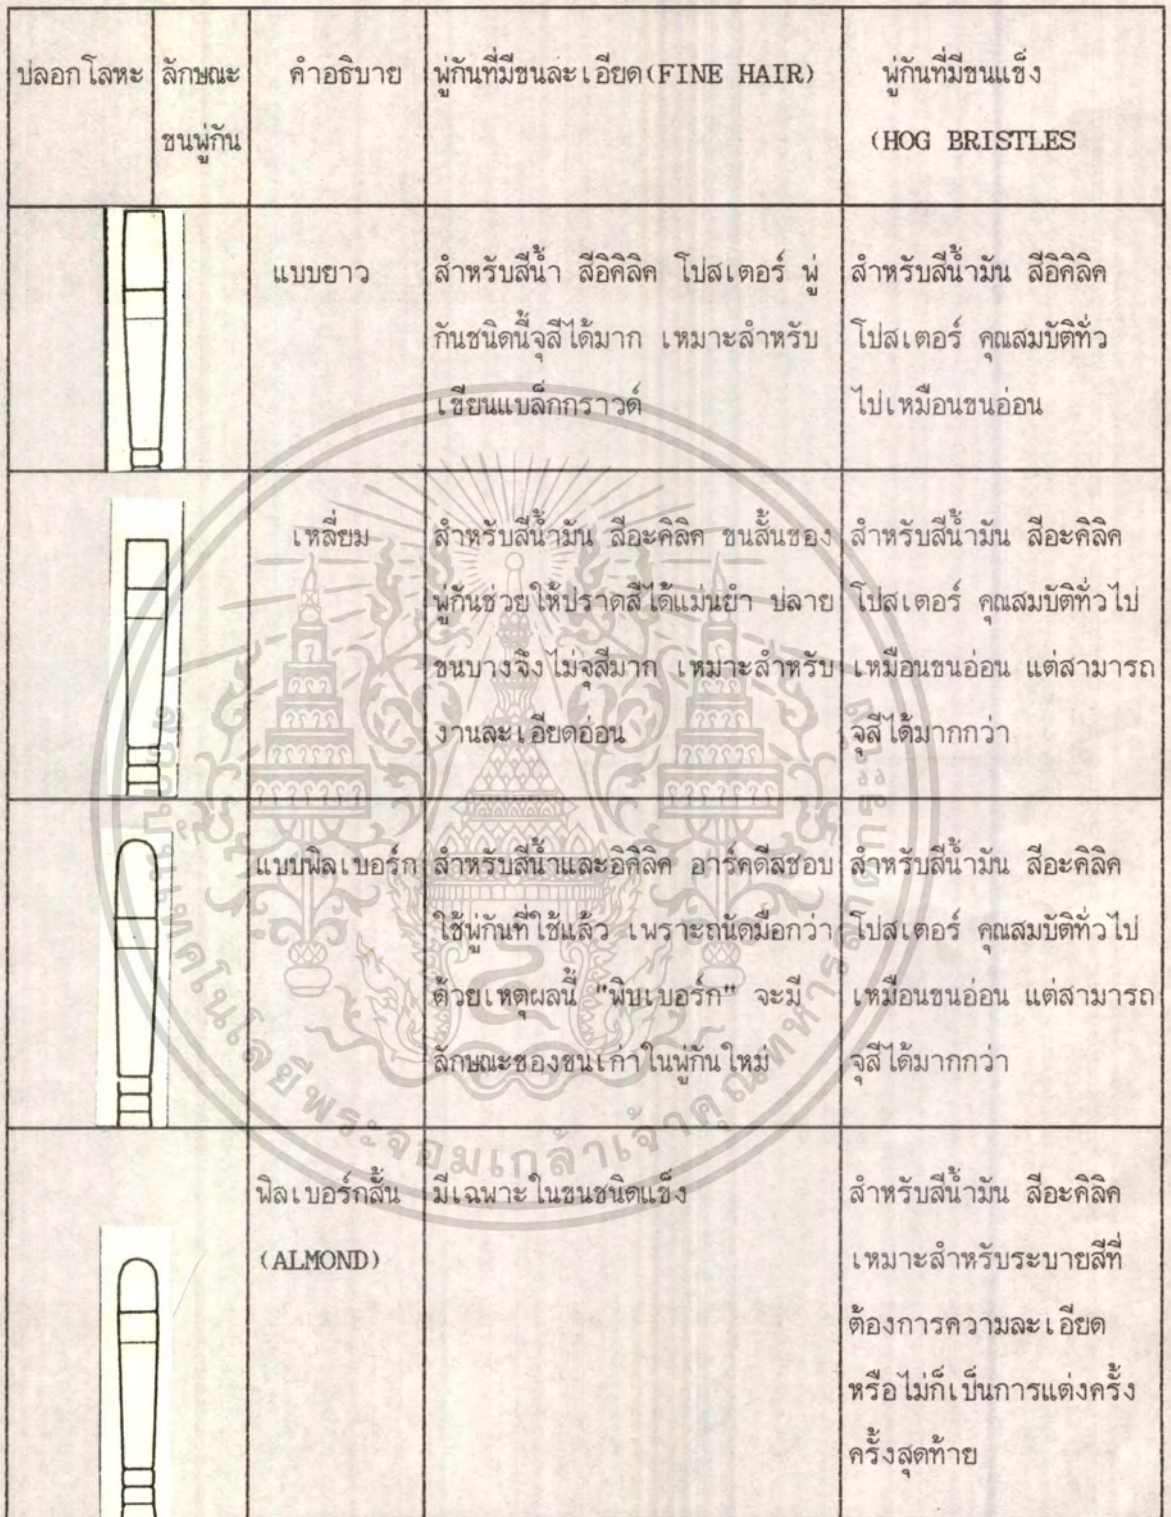 ปลอกโลหะ ลักษณะ คำอธิบาย พู่กันที่มีขนละเอียด(FINE HAIR) พู่กันที่มีขนแข็ง
ขนพู่กัน (HOG BRISTLES
แบบยาว
สำหรับสีน้ำ สีอิคิลิค โปสเตอร์ พู่
กันชนิดนี้จุสีได้มาก เหมาะสำหรับ
เขียนแบล็กกราวด์
สำหรับสีน้ำมัน สีอิคิลิค
โปสเตอร์ คุณสมบัติทั่ว
ไปเหมือนขนอ่อน
เหลี่ยม
สำหรับสีน้ำมัน สีอะคิลิค ขนสั้นของ
พู่กันช่วยให้ปราดสีได้แม่นยำ ปลาย
ขนบางจึงไม่จุสีมาก เหมาะสำหรับ
งานละเอียดอ่อน
สำหรับสีน้ำมัน สีอะคิลิค
โปสเตอร์ คุณสมบัติทั่วไป
เหมือนขนอ่อน แต่สามารถ
จุสีได้มากกว่า
แบบฟิลเบอร์ก
สำหรับสีน้ำและอิคิลิค อาร์คดีสชอบ
ใช้พู่กันที่ใช้แล้ว เพราะถนัดมือกว่า
ด้วยเหตุผลนี้ "พิบเบอร์ก" จะมี
ลักษณะของขนเก่าในพู่กันใหม่
สำหรับสีน้ำมัน สีอะคิลิค
โปสเตอร์ คุณสมบัติทั่วไป
เหมือนขนอ่อน แต่สามารถ
จุสีได้มากกว่า
ฟิลเบอร์กสั้น
(ALMOND)
มีเฉพาะในขนชนิดแข็ง
สำหรับสีน้ำมัน สีอะคิลิค
เหมาะสำหรับระบายสีที่
ต้องการความละเอียด
หรือไม่ก็เป็นการแต่งครั้ง
ครั้งสุดท้าย
สถาบันเทคโนโลยีพระจอมเกล้าเจ้าคุณทหารลาดกระบัง